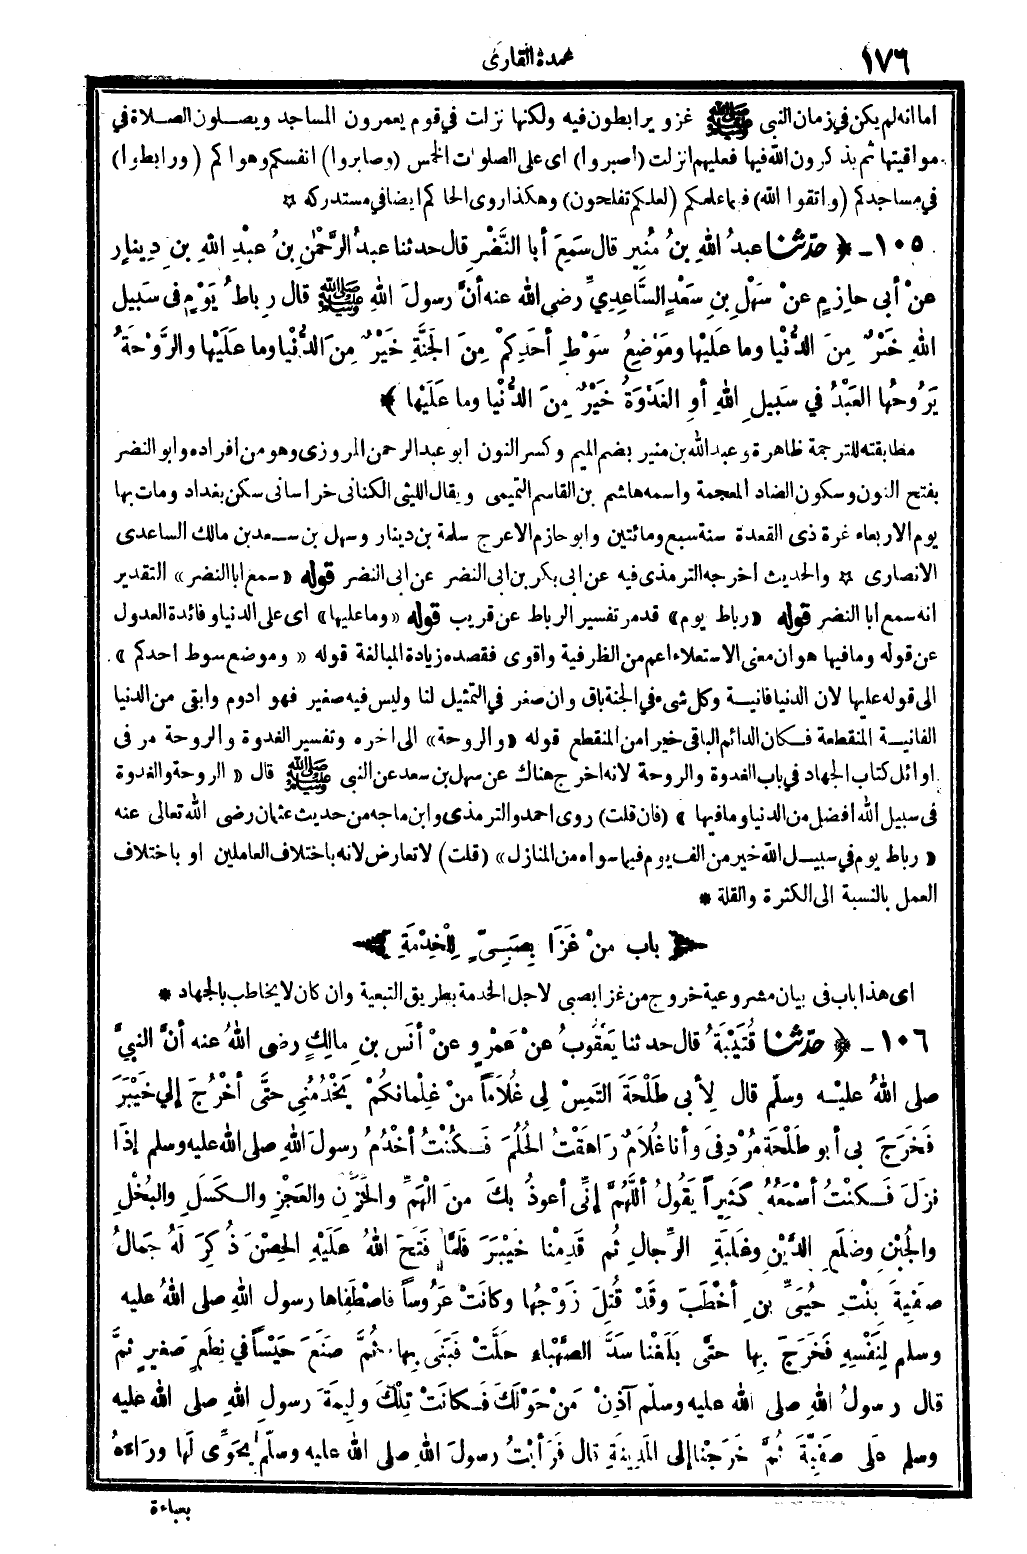 ١٧٦
عمدة القارئ
اما انه لم يكن في زمان النبي ﷺ غزو يرابطون فيه ولكنها نزلت في قوم يعمرون المساجد ويصلون الصلاة في
مواقيتها ثم يذكرون الله فيها فعليهم انزلت (اصبروا) اى على الصلوات الخمس (وصابروا) انفسكم وهواكم (ورابطوا)
في مساجدكم (واتقوا الله) فيما علمكم (لعلكم تفلحون) وهكذا روى الحاكم ايضا في مستدركه ✡
١٠٥ ـ ﴿ حَدَّثَنَا عبدُ اللهِ بنُ مُنِيرٍ قال سَمِعَ أبا النَّضْرِ قال حدثنا عبدُ الرَّحْمٰنِ بنُ عبْدِ اللهِ بنِ دِينارٍ
عنْ أبي حازِمٍ عنْ سَهْلِ بنِ سَعْدٍ السَّاعِدِيِّ رضى الله عنه أنَّ رسولَ اللهِ ﷺ قال رِباطُ يَوْمٍ في سَبيل
اللهِ خَيْرٌ مِنَ الدُّنْيا وما علَيْها ومَوْضِعُ سَوْطِ أحَدِكُمْ مِنَ الجَنَّةِ خَيْرٌ مِنَ الدُّنْيا وما علَيْها والرَّوْحَةُ
يَرُوحُها العَبْدُ في سَبيلِ اللهِ أوِ الغَدْوَةُ خَيْرٌ مِنَ الدُّنْيا وما علَيْها ﴾
مطابقته للترجمة ظاهرة وعبد الله بن منير بضم الميم وكسر النون ابو عبد الرحمن المروزى وهو من افراده وابو النضر
بفتح النون وسكون الضاد المعجمة واسمه هاشم بن القاسم التميمى ويقال الليثى الكنانى خراسانى سكن بغداد ومات بها
يوم الاربعاء غرة ذى القعدة سنة سبع ومائتين وابو حازم الاعرج سلمة بن دينار وسهل بن سعد بن مالك الساعدى
الانصارى ✡ والحديث اخرجه الترمذى فيه عن ابى بكر بن ابى النضر عن ابى النضر قوله «سمع ابا النضر» التقدير
انه سمع ابا النضر قوله «رباط يوم» قد مر تفسير الرباط عن قريب قوله «وما عليها» اى على الدنيا وفائدة العدول
عن قوله وما فيها هو ان معنى الاستعلاء اعم من الظرفية واقوى فقصده زيادة المبالغة قوله «وموضع سوط احدكم»
الى قوله عليها لان الدنيا فانية وكل شىء في الجنة باق وان صغر في التمثيل لنا وليس فيه صغير فهو ادوم وابقى من الدنيا
الفانية المنقطعة فكان الدائم الباقى خيرا من المنقطع قوله «والروحة» الى اخره وتفسير الغدوة والروحة مر فى
اوائل كتاب الجهاد في باب الغدوة والروحة لانه اخرج هناك عن سهل بن سعد عن النبى ﷺ قال «الروحة والغدوة
فى سبيل الله افضل من الدنيا وما فيها» (فان قلت) روى احمد والترمذى وابن ماجه من حديث عثمان رضى الله تعالى عنه
«رباط يوم في سبيل الله خير من الف يوم فيما سواه من المنازل» (قلت) لا تعارض لانه باختلاف العاملين او باختلاف
العمل بالنسبة الى الكثرة والقلة *
﴿ باب منْ غَزَا بِصَبِىٍّ لِلْخِدْمَةِ ﴾
اى هذا باب فى بيان مشروعية خروج من غزا بصبى لاجل الخدمة بطريق التبعية وان كان لا يخاطب بالجهاد *
١٠٦ ـ ﴿ حَدَّثَنَا قُتَيْبَةُ قال حدثنا يَعْقُوبُ عنْ عَمْرٍو عنْ أنَسِ بنِ مالِكٍ رضى اللهُ عنه أنَّ النبيَّ
صلى اللهُ عليْه وسلّم قال لِأبى طَلْحَةَ التَمِسْ لى غُلَاماً منْ غِلْمانكُمْ يَخْدُمُنِى حتَّى أخْرُجَ إلى خَيْبَرَ
فَخَرَجَ بى أبو طَلْحَةَ مُرْدِفِىَ وأنا غُلَامٌ رَاهَقْتُ الحُلُمَ فَكُنْتُ أخْدُمُ رسولَ اللهِ صلى الله عليه وسلم إذَا
نزَلَ فَكُنْتُ أسْمَعُهُ كَثِيراً يَقُولُ أللَّهُمَّ إنِّى أعوذُ بكَ منَ الْهَمِّ والحَزَنِ والعَجْزِ والكَسَلِ والبُخْلِ
والجُبْنِ وضَلَعِ الدَّيْنِ وغَلَبَةِ الرِّجالِ ثُم قَدِمْنا خَيْبَرَ فَلمَّا فَتَحَ اللهُ علَيْهِ الحِصْنَ ذُكِرَ لَهُ جَمالُ
صَفِيةَ بِنْتِ حُيَىِّ بنِ أخْطَبَ وقَدْ قُتِلَ زَوْجُها وكانَتْ عَرُوساً فاصْطَفاها رسول اللهِ صلى اللهُ عليه
وسلم لِنَفْسِهِ فَخَرَجَ بِها حتَّى بلَغْنا سدَّ الصَّهْباءِ حلَّتْ فَبَنَى بِها ثُمَّ صنَعَ حَيْساً في نِطَعٍ صَغيرٍ ثمَّ
قال رسولُ اللهِ صلى الله عليه وسلّم آذِنْ مَنْ حَوْلَكَ فَكانَتْ تِلْكَ ولِيمَةَ رسولِ اللهِ صلى الله عليه
وسلم علَى صَفِيَّةَ ثُمَّ خَرَجْنا إلى المَدِينَةِ قال فَرَأيْتُ رسولَ اللهِ صلى الله عليه وسلّم يُحَوِّى لَها ورَاءَهُ
بعباءة